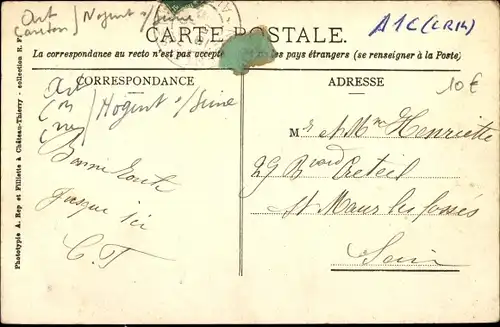 Art / Nogent s/Seine
Canton
A1C (CR14)
CARTE POSTALE.
La correspondance au recto n'est pas acceptée les pays étrangers (se renseigner à la Poste)
CORRESPONDANCE
Art
Nogent s/Seine
Bonne Route
Jusque ici
C.T
ADRESSE
10€
Mr et Mme Henriette
29 Bvard Creteil
St Maur les fossés
Seine
Phototypie A. Rep et Filliette à Château-Thierry - collection R. F